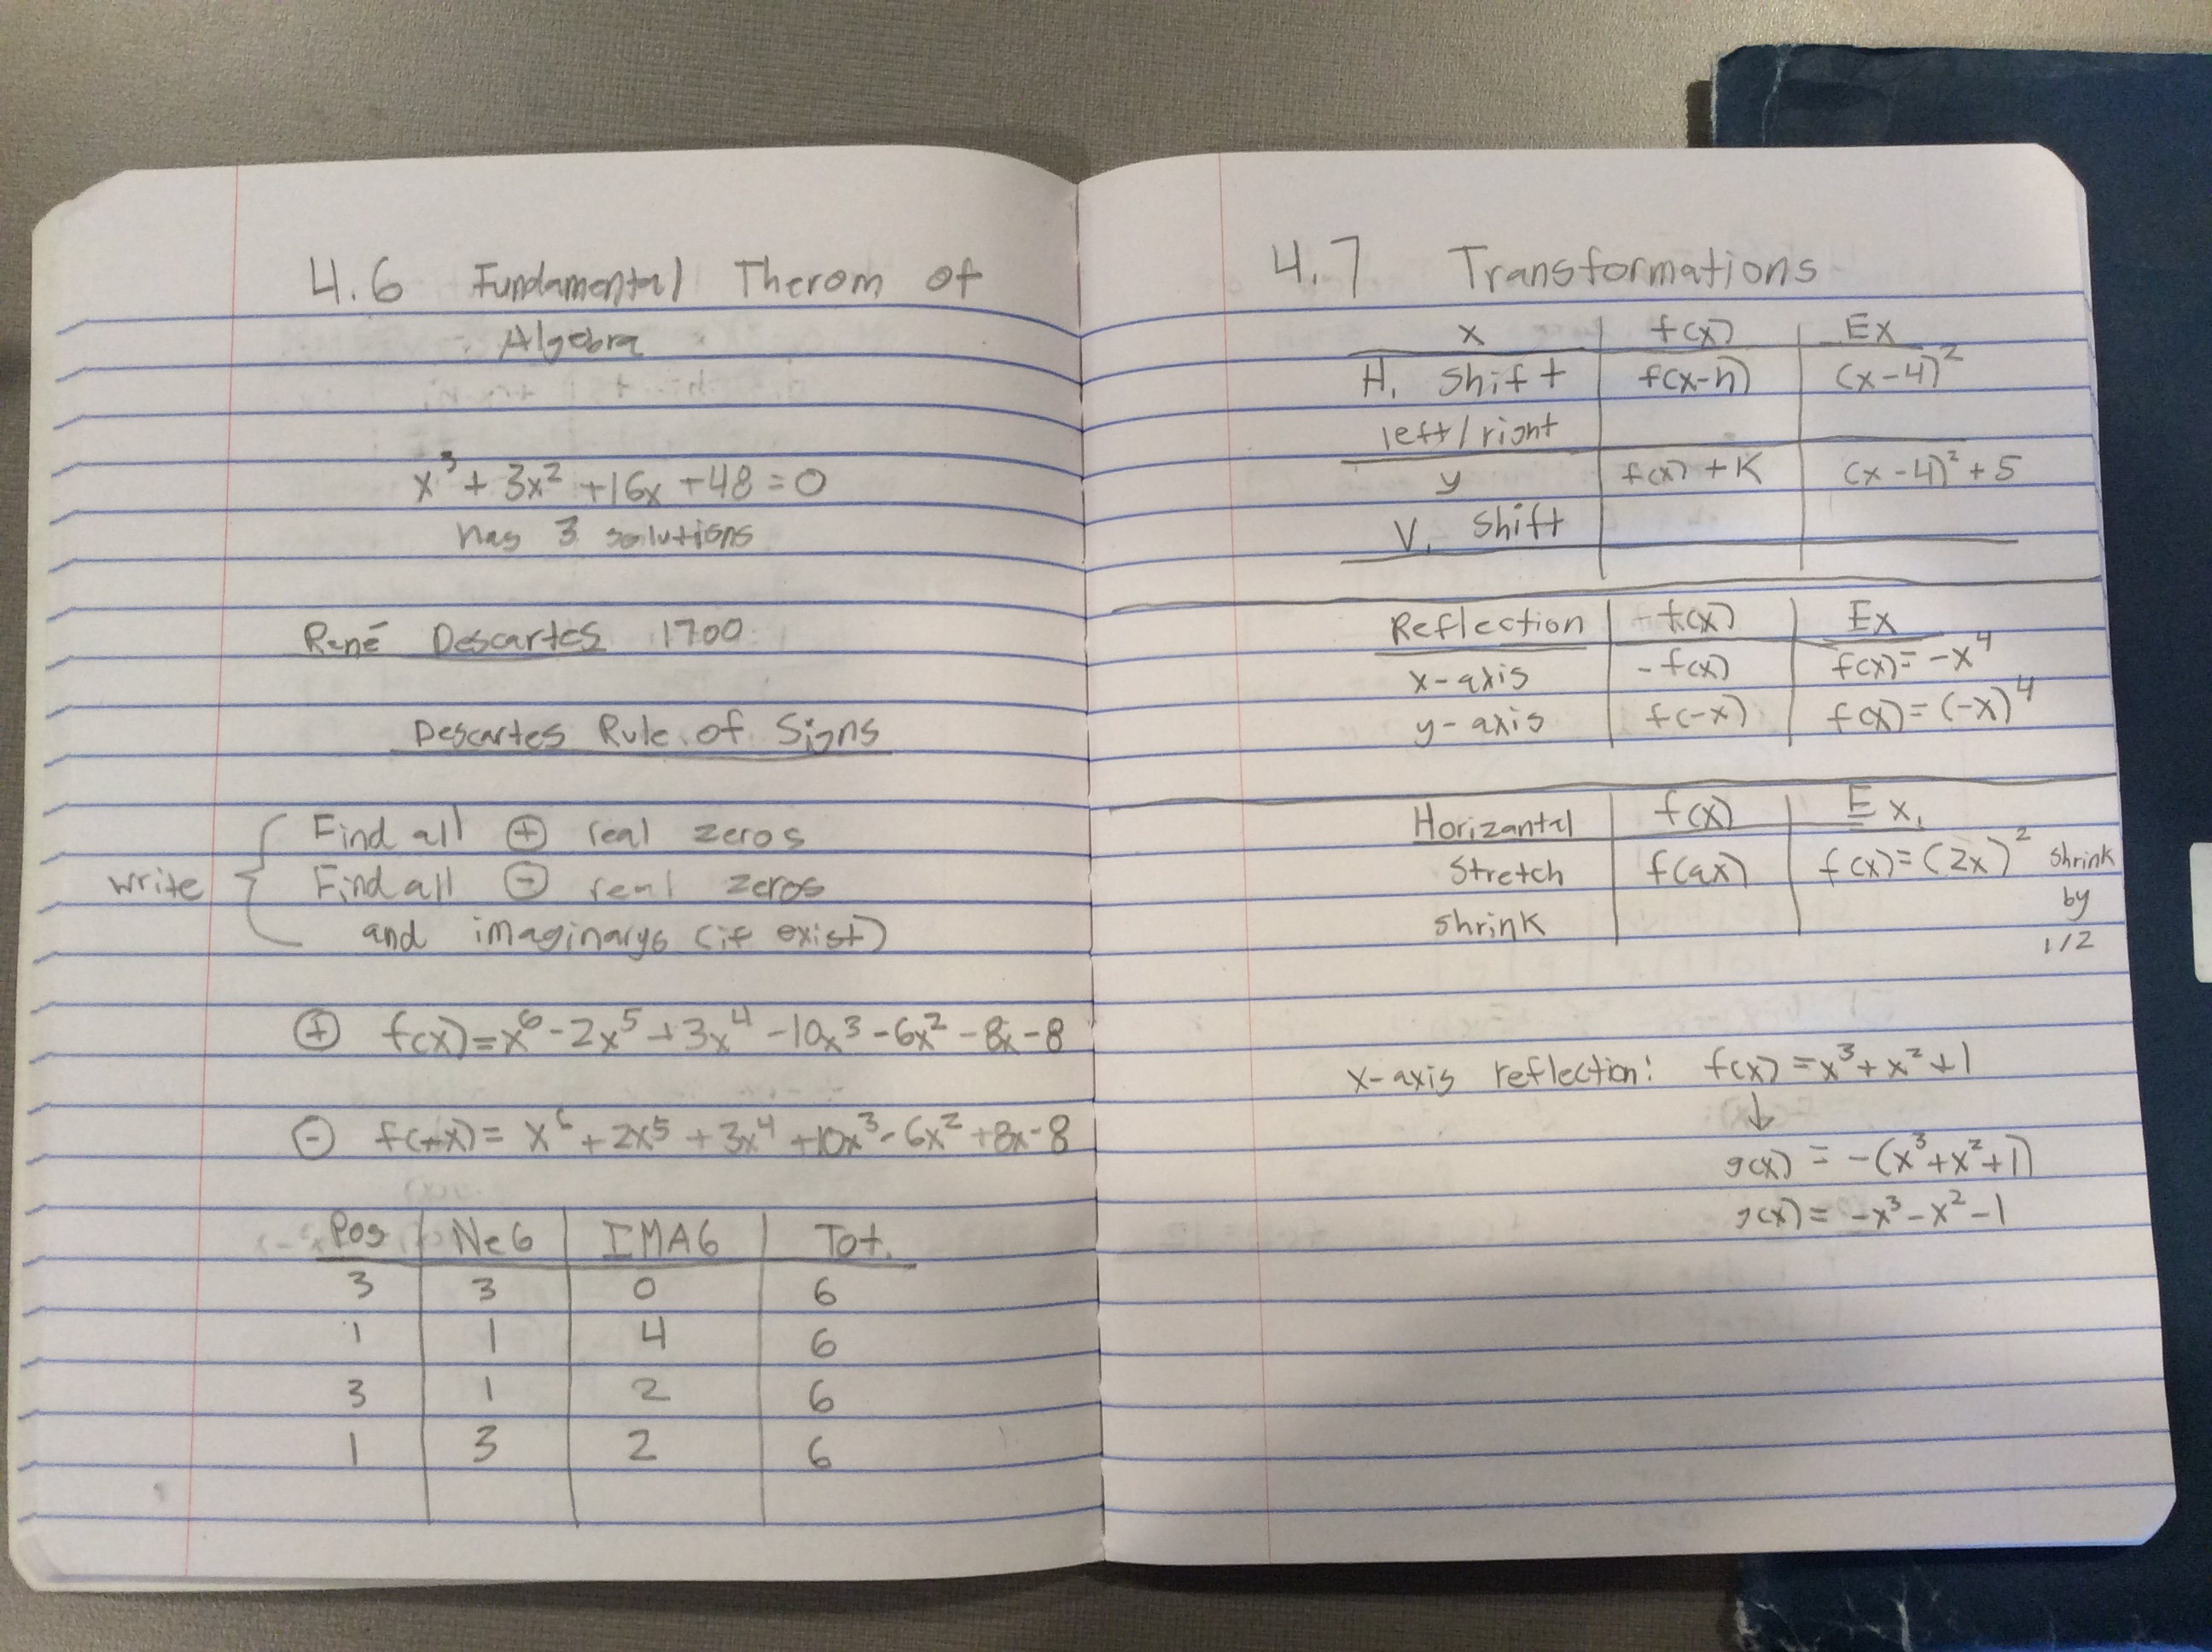 4.6 Fundamental Therom of
Algebra
x³ + 3x² + 16x + 48 = 0
has 3 solutions
René Descartes 1700
Descartes Rule of Signs
write { Find all ⊕ real zeros
Find all ⊖ real zeros
and imaginarys (if exist)
⊕ f(x) = x⁶ - 2x⁵ + 3x⁴ - 10x³ - 6x² - 8x - 8
⊖ f(-x) = x⁶ + 2x⁵ + 3x⁴ + 10x³ - 6x² + 8x - 8
Pos | Neg | IMAG | Tot.
3 | 3 | 0 | 6
1 | 1 | 4 | 6
3 | 1 | 2 | 6
1 | 3 | 2 | 6
4.7 Transformations
x | f(x) | Ex
H. Shift | f(x-h) | (x-4)²
left/right
y | f(x) + K | (x-4)² + 5
V. Shift
Reflection | f(x) | Ex
x-axis | -f(x) | f(x) = -x⁴
y-axis | f(-x) | f(x) = (-x)⁴
Horizantal | f(x) | Ex.
Stretch | f(ax) | f(x) = (2x)² shrink
by
shrink
1/2
x-axis reflection: f(x) = x³ + x² + 1
↓
g(x) = -(x³ + x² + 1)
g(x) = -x³ - x² - 1